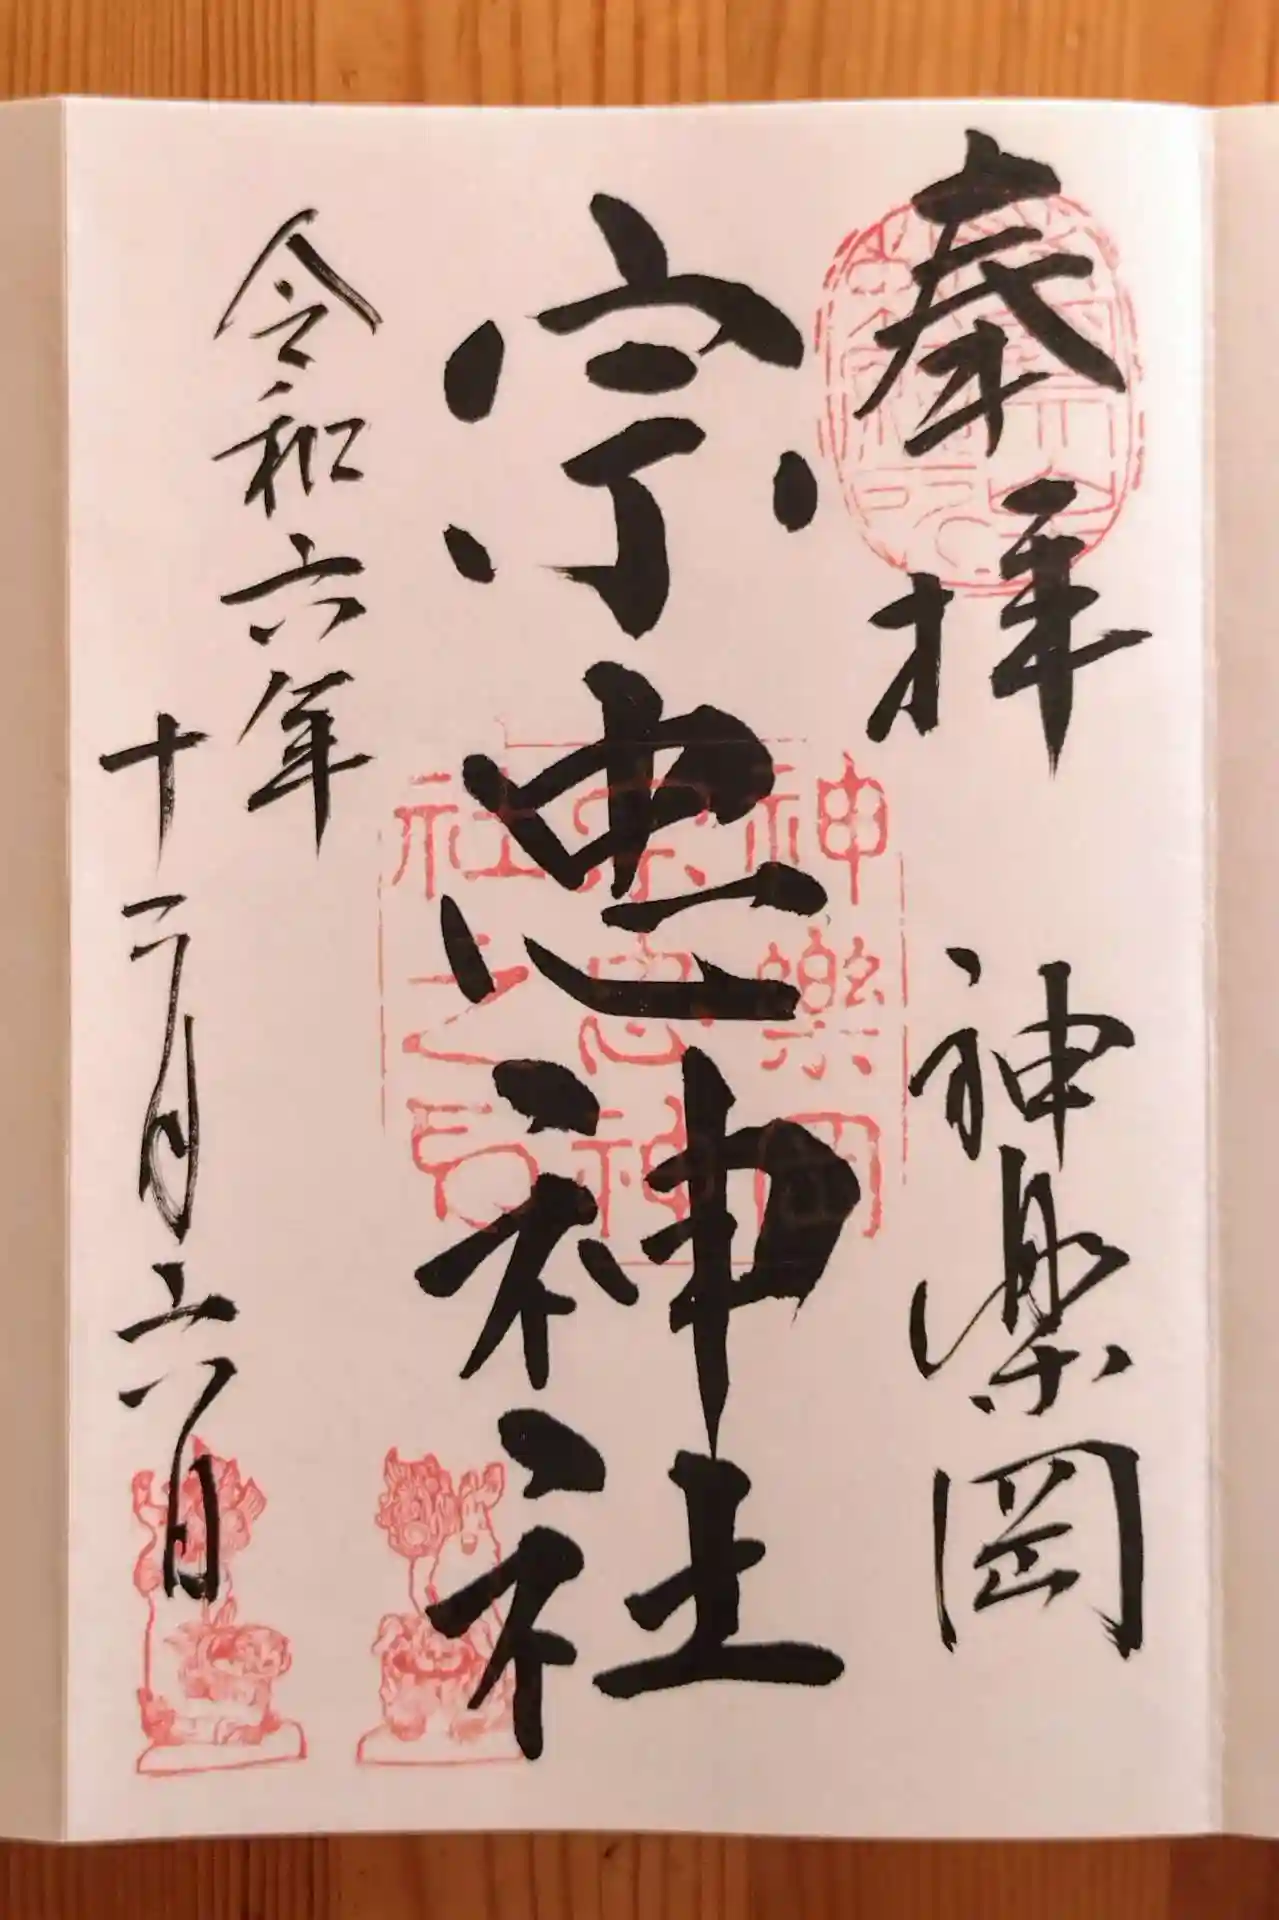 奉拝 神楽岡
宗忠神社
令和六年
十二月六日
神樂岡
宗忠神
社之印